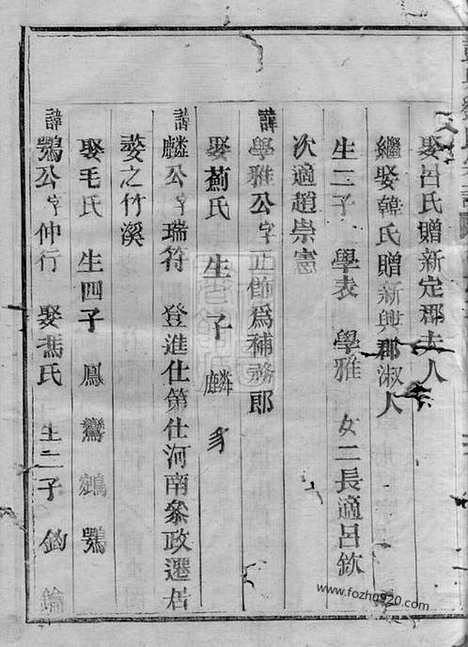 娶呂氏贈新定郡夫人
繼娶韓氏贈新興郡淑人
生二子 學表 學雅 女二長適呂欽
次適趙崇憲
諱學雅公字正飾為補務郎
娶薊氏 生子麟豸
諱麟公字瑞符 登進仕第仕河南叅政遷居
婺之竹溪
娶毛氏 生四子 鳳 鸞 鵷 鶚
諱鶚公字仲行 娶馮氏 生二子
www.fozhu920.com